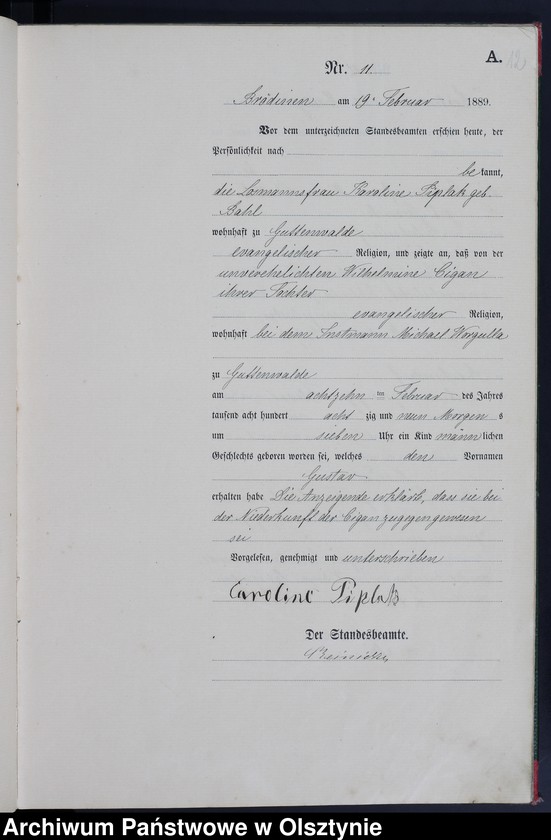 A. 12
Nr. 11.
Brödinen am 19. Februar 1889.
Vor dem unterzeichneten Standesbeamten erschien heute, der
Persönlichkeit nach
bekannt,
die Losmannsfrau Karoline Piplak geb.
Bahl
wohnhaft zu Guttenwalde
evangelischer Religion, und zeigte an, daß von der
unverehelichten Wilhelmine Cigan
ihrer Tochter
evangelischer Religion,
wohnhaft bei dem Instmann Michael Worgulla
zu Guttenwalde
am achtzehn ten Februar des Jahres
tausend acht hundert acht zig und neun Morgens
um sieben Uhr ein Kind männlichen
Geschlechts geboren worden sei, welches den Vornamen
Gustav
erhalten habe Die Anzeigende erklärt, dass sie bei
der Niederkunft der Cigan zugegen gewesen
sei
Vorgelesen, genehmigt und unterschrieben
Caroline Piplak
Der Standesbeamte.
Archiwum Państwowe w Olsztynie